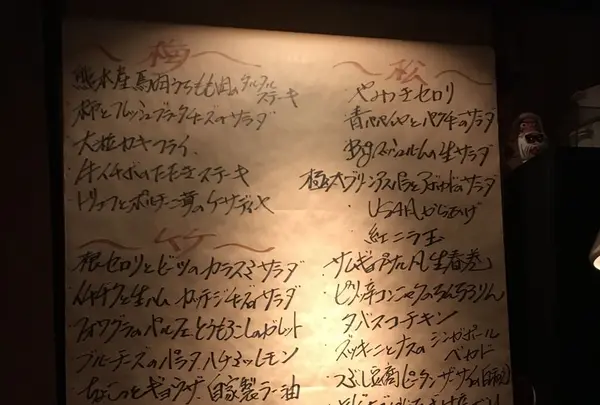 〜梅〜
熊本産馬肉うちもも肉のタルタル
ステーキ
柿とフレッシュブラータチーズのサラダ
大粒カキフライ
牛イチボのたたきステーキ
トリュフとポルチーニ茸のケサディヤ
〜竹〜
根セロリとビーツのカラスミサラダ
イチヂクと生ハム カッテージチーズのサラダ
フォワグラのパルフェとうもろこしのガレット
ブルーチーズのパラタ ハチミツレモン
ちょこっとギョウザ 自家製ラー油
〜松〜
やみつきセロリ
青パパイヤとパクチーのサラダ
Bigマッシュルームの生サラダ
極太プリンアスパラと の サラダ
USAからあげ
紅ニラ玉
サムギョプサル風「生春巻」
ピリ辛コンニャクのちんちろりん
タバスコチキン
ズッキーニとナスのシンガポール
ペカド
豆腐ピータンザーサイ